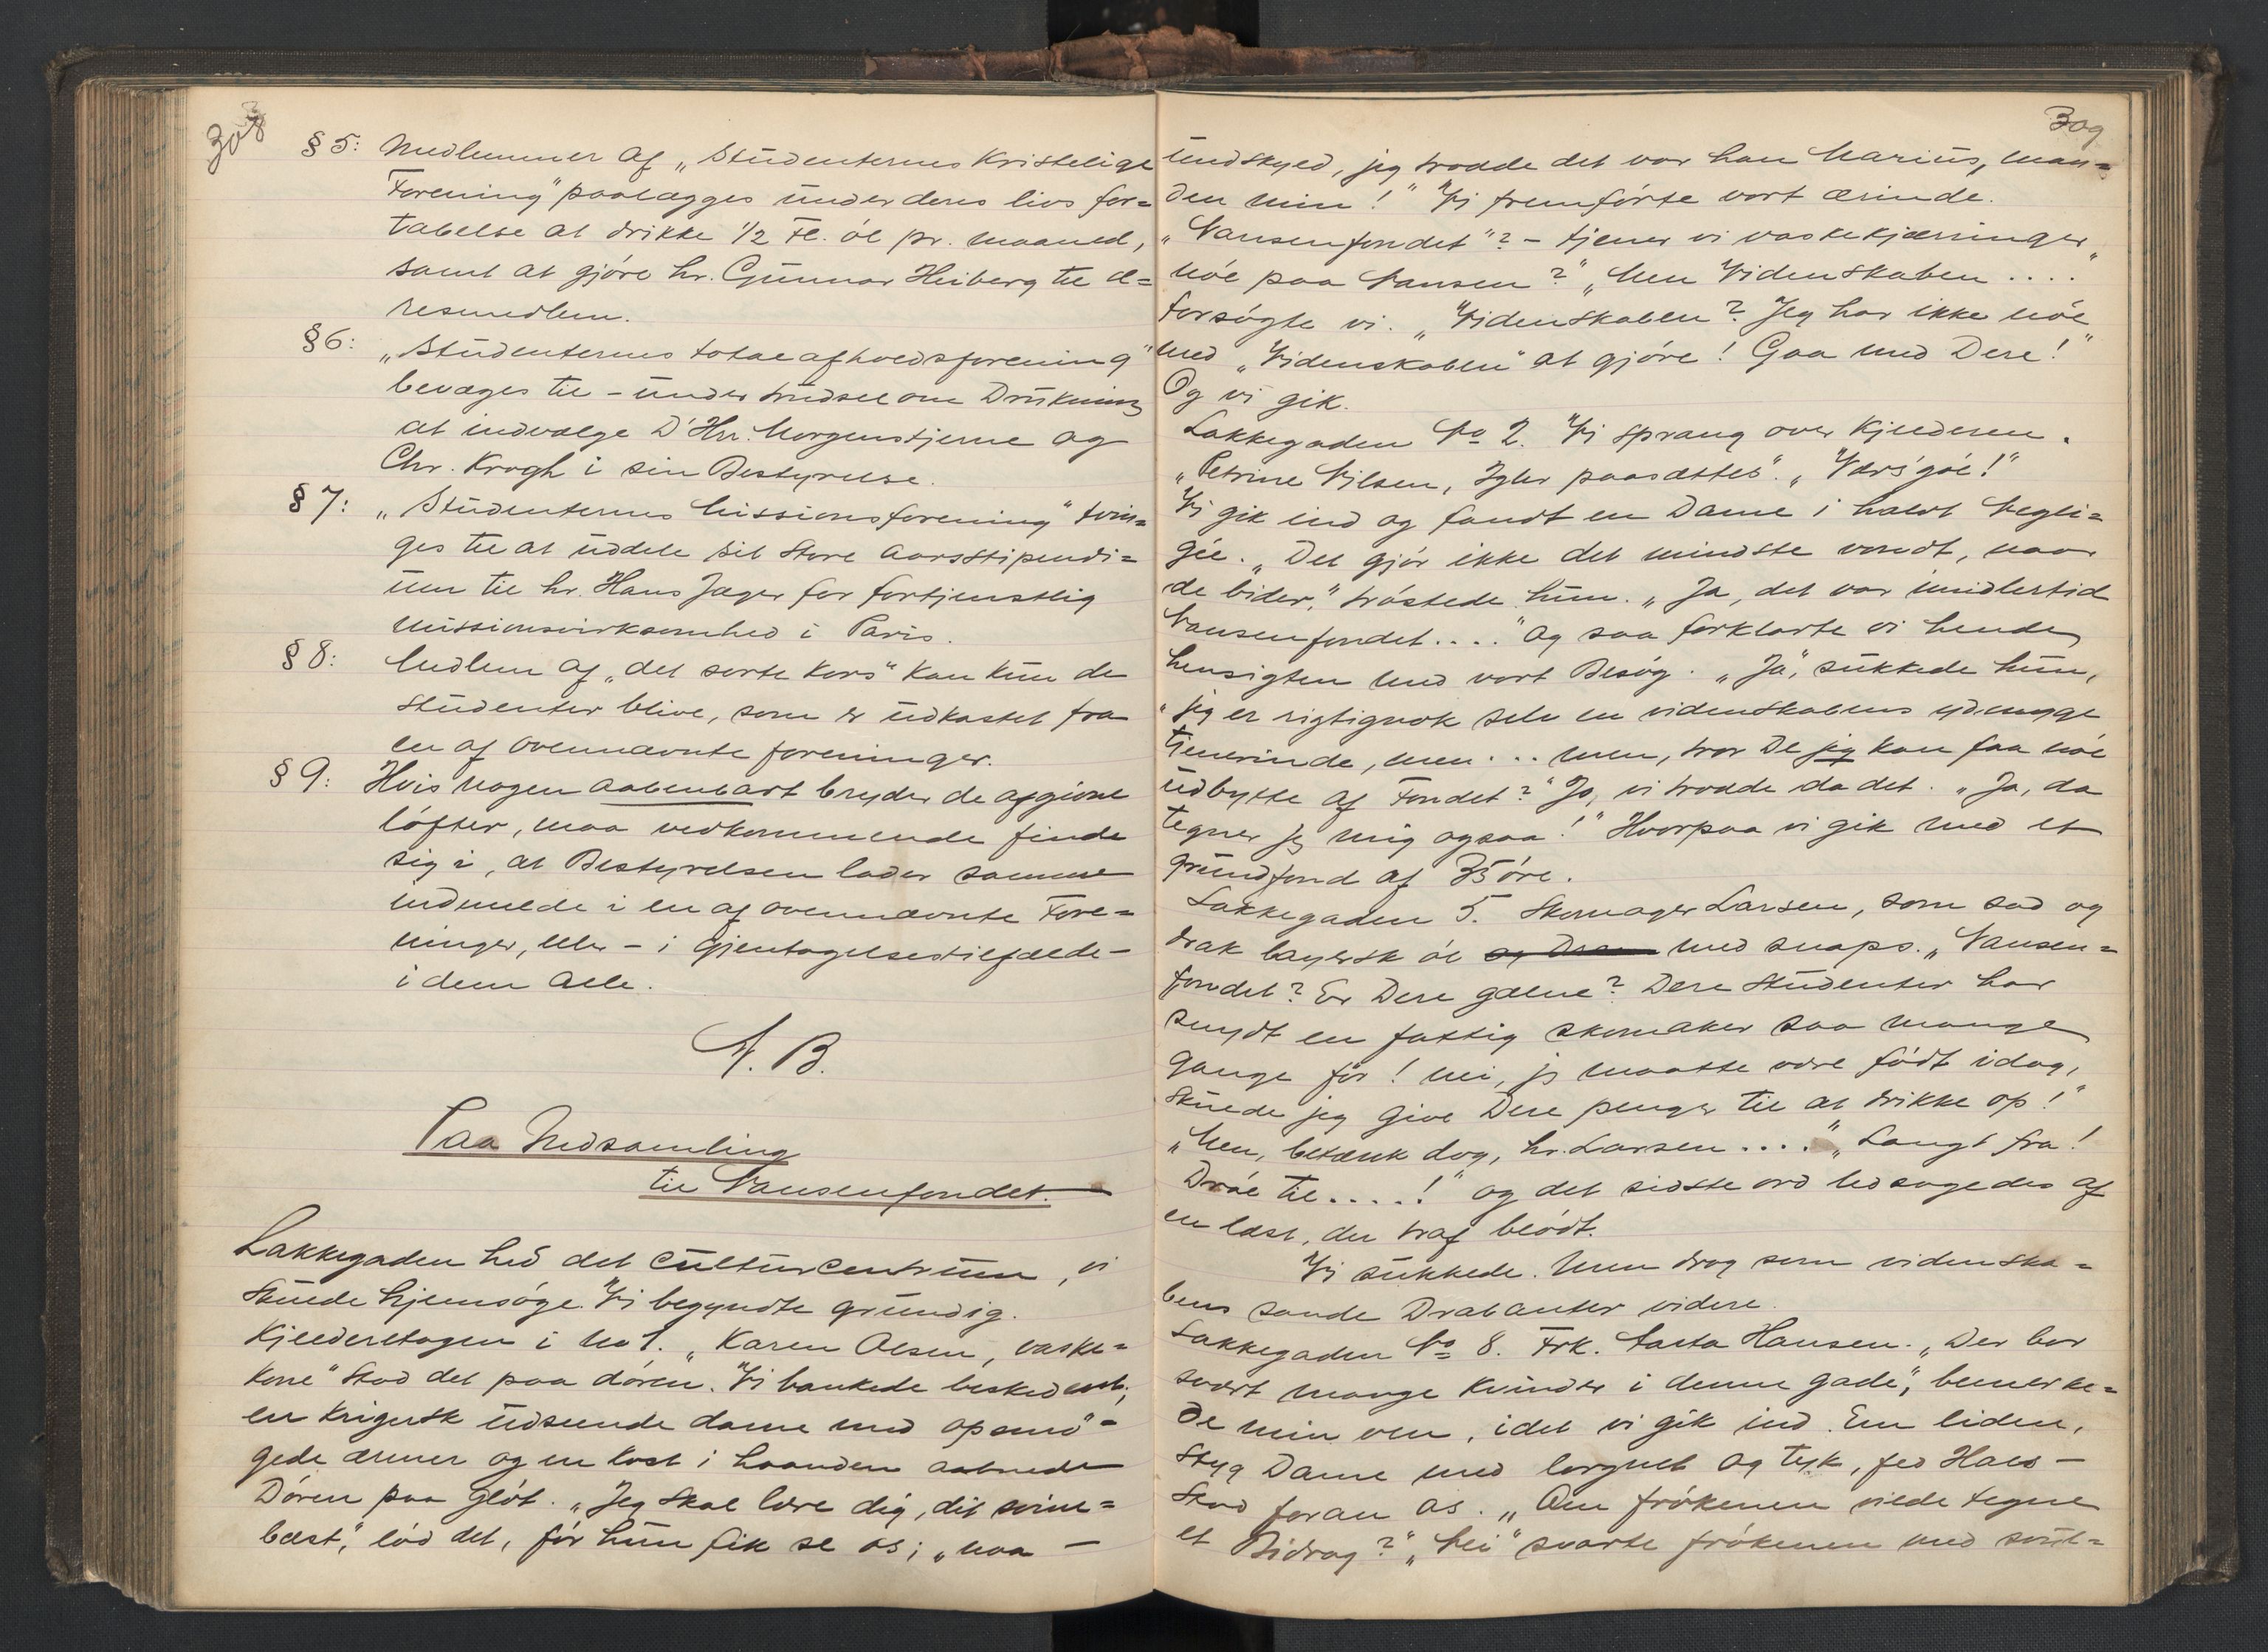 308
§ 5: Medlemmer af „Studenternes Kristelige
Forening" paalægges under deres livs for=
tabelse at drikke 1/2 Fl. øl pr. maaned,
samt at gjøre hr. Gunnar Heiberg til æ=
resmedlem.
§ 6: „Studenternes totalafholdsforening"
bevæges til – under trudsel om Drukning
at indvælge D'Hrr. Morgenstjerne og
Chr. Krogh i sin Bestyrelse.
§ 7: „Studenternes Missionsforening" tvin=
ges til at uddele sit store aarsstipendi=
um til hr. Hans Jæger for fortjenstlig
missionsvirksomhed i Paris.
§ 8: Medlem af „det sorte kors" kan kun de
studenter blive, som er udkastet fra
en af ovennævnte foreninger.
§ 9: Hvis nogen aabenbart bryder de afgivne
løfter, maa vedkommende finde
sig i, at Bestyrelsen lader samme
indmelde i en af ovennævnte Fore=
ninger, eller – i gjentagelsestilfælde –
i dem alle.
N. B.
Paa Indsamling
til Nansenfondet.
Lakkegaden hed det Culturcentrum, vi
skulde hjemsøge. Vi begyndte grundig.
Kjelderetagen i No 1. „Karen Olsen, vaske=
kone" stod det paa døren. Vi bankede beskedent;
en krigersk udseende dame med opsmø=
gede ærmer og en kost i haanden aabnede
Døren paa Gløt. „Jeg skal lære dig, dit svine=
bæst," lød det, før hun fik se os; „naa –
309
undskyld, jeg trodde det var han Marius, man=
den min!" Vi fremførte vort ærinde.
„Nansenfondet"? – tjener vi vaskekjærringer
nóe paa Nansen?" „Men Videnskaben ...."
forsøgte vi. „Videnskaben? Jeg har ikke nóe
med „Videnskaben" at gjøre! Gaa med Dere!"
Og vi gik.
Lakkegaden No 2. Vi sprang over Kjelderen.
„Petrine Nilsen, Igler paasættes". „Værs'góe!"
Vi gik ind og fandt en Dame i halvt Negli=
gée. „Det gjør ikke det mindste vondt, naar
de bider," trøstede hun. „Ja, det var imidlertid
Nansenfondet...." Og saa forklarte vi hende
hensigten med vort Besøg. „Ja," sukkede hun,
„jeg er rigtignok selv en videnskabens ydmyge
tjenerinde, men... men, tror De jeg kan faa nóe
udbytte af Fondet?" Jo, vi trodde da det. „Ja, da
tegner jeg mig ogsaa!" Hvorpaa vi gik med et
grundfond af 35 øre.
Lakkegaden 5. Skomager Larsen, som sad og
drak bayersk øl og Dram med snaps. „Nansen=
fondet? Er Dere gælne? Dere Studenter har
snydt en fattig skomaker saa mange
gange før! Nei, jeg maatte være født idag,
skulde jeg give Dere penger til at drikke op!"
„Men, betænk dog, hr. Larsen...." „Langt fra!
Dra'e til....!" og det sidste ord ledsagedes af
en læst, der traf blødt.
Vi sukkede. Men drog som videnska=
bens sande Drabanter videre.
Lakkegaden No 8. Frk. Hansen. „Der bor
svært mange kvinder i denne gade," bemerke=
de min ven, idet vi gik ind. En liden,
styg Dame med lorgnet og tyk, fed Hals –
stod foran os. „Om frøkenen vilde tegne
et Bidrag?" „Nei" svarte frøkenen med